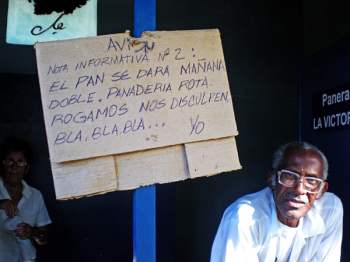 che
AVISO
NOTA INFORMATIVA Nº 2:
EL PAN SE DARA MAÑANA
DOBLE. PANADERIA ROTA.
ROGAMOS NOS DISCULPEN.
BLA, BLA, BLA... YO
Panera
LA VICTOR